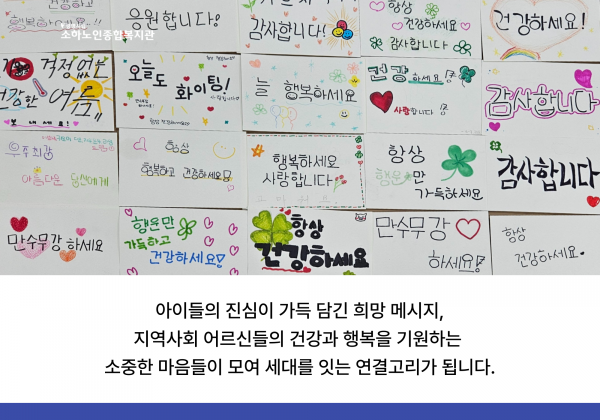 건강하고
행복하세요!!
소하노인종합복지관
응원합니다!
감사합니다!
항상
건강하세요
감사합니다
건강하세요!
걱정없는
건강한 여름
보내세요!
오늘도
화이팅!
늘 행복하세요
건강하세요
사랑합니다
감사합니다
우주최강
아름다운
항상
행복하고 건강하세요
행복하세요
사랑합니다
항상
행운만
가득하세요
감사합니다
만수무강 하세요
행운만
가득하고
건강하세요
항상
건강하세요
만수무강
하세요!
항상
건강하세요.
아이들의 진심이 가득 담긴 희망 메시지,
지역사회 어르신들의 건강과 행복을 기원하는
소중한 마음들이 모여 세대를 잇는 연결고리가 됩니다.